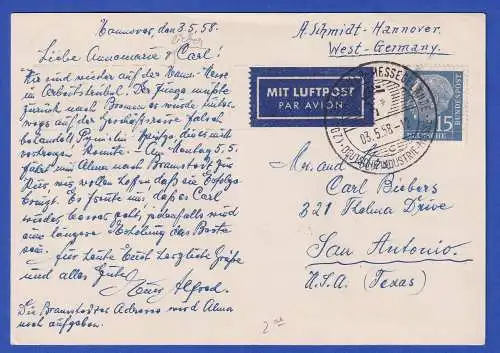 Hannover, den 3.5.58.
Liebe Annemarie & Carl!
Wir sind wieder auf der Hann.-Messe
im Arbeitstrubel. Der Junge mußte
zurück nach Bremen es würde
wegs auf der Geschäftsreise falsch
vertragen konnte. - Am Montag 5.5.
fährt nun Alma nach Bramstedt zur
Kur, wir wollen hoffen daß sie Erfolge
bringt. Es freute uns, daß es Carl
wieder besser geht, jedenfalls wird
eine längere Erholung das Beste
sein.
Für heute Euch herzliche Grüße
und alles Gute!
Euer Alfred.
Die Bramstedter Adresse wird Alma
noch aufgeben.
A. Schmidt-Hannover.
West-Germany.
MIT LUFTPOST
PAR AVION
03.5.58
DEUTSCHE INDUSTRIE-
DEUTSCHE BUNDESPOST
15
Mr. and
Carl Biebers
321 Thelma Drive
San Antonio.
U.S.A. (Texas)